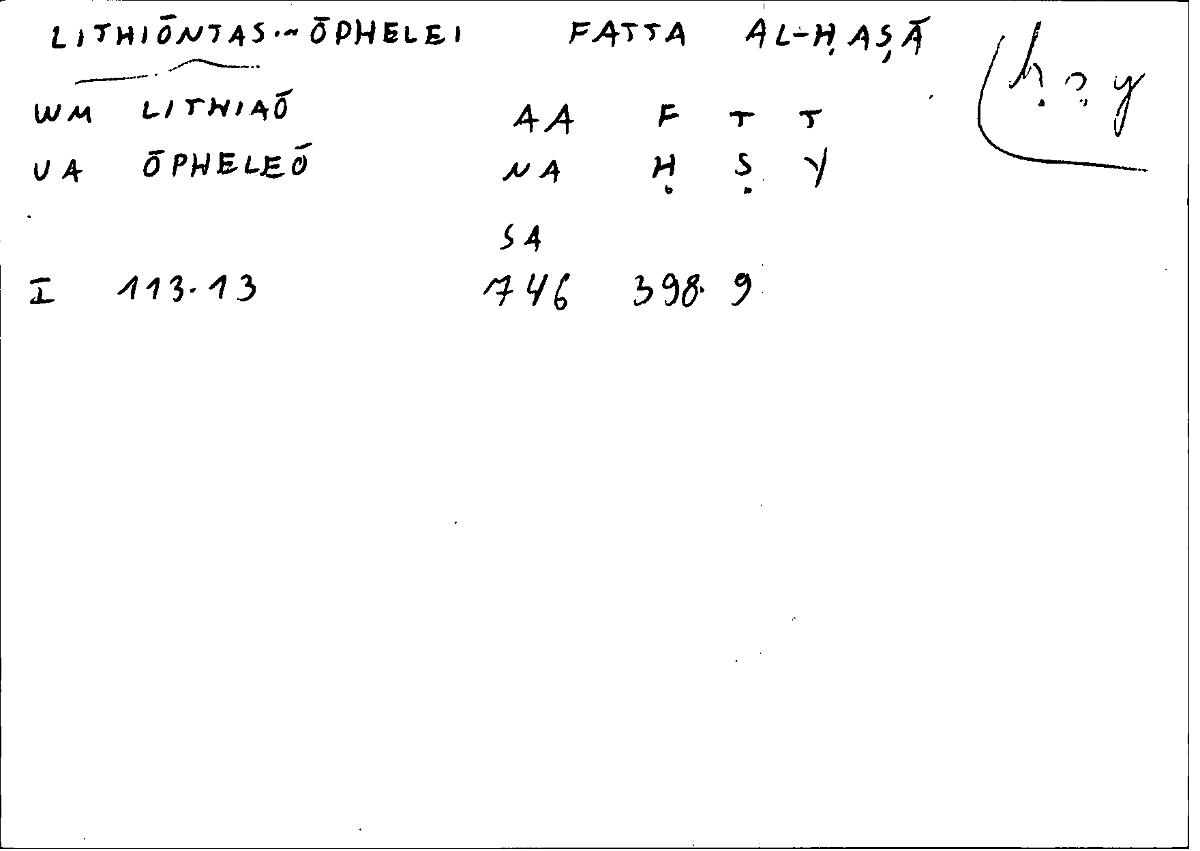 LITHIŌNTAS·~ŌPHELEI FATTA AL-ḤAṢĀ
WM LITHIAŌ AA F T T
VA ŌPHELEŌ NA Ḥ Ṣ Y
SA
I 113.13 746 398.9